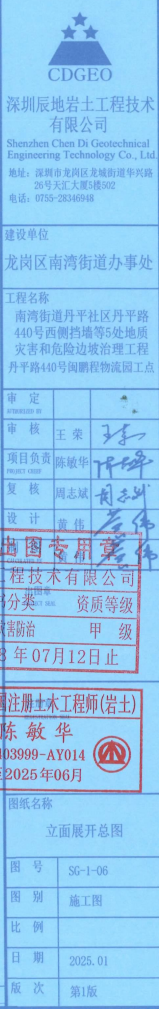 CDGEO
深圳辰地岩土工程技术
有限公司
Shenzhen Chen Di Geotechnical
Engineering Technology Co., Ltd.
地址：深圳市龙岗区龙城街道华兴路
26号天汇大厦5楼502
电话：0755-28346948
建设单位
龙岗区南湾街道办事处
工程名称
南湾街道丹平社区丹平路
440号西侧挡墙等5处地质
灾害和危险边坡治理工程
丹平路440号闽鹏程物流园工点
审 定
审 核 王 荣
项目负责 陈敏华 陈敏华
PROJECT CHIEF
复 核 周志斌 周志斌
设 计 黄 伟 黄伟
出图专用章
工程技术有限公司
分类 资质等级
灾害防治 甲 级
8年07月12日止
国注册土木工程师(岩土)
陈敏华
403999-AY014
至2025年06月
图纸名称
立面展开总图
图 号 SG-1-06
图 别 施工图
比 例
日 期 2025.01
版 次 第1版